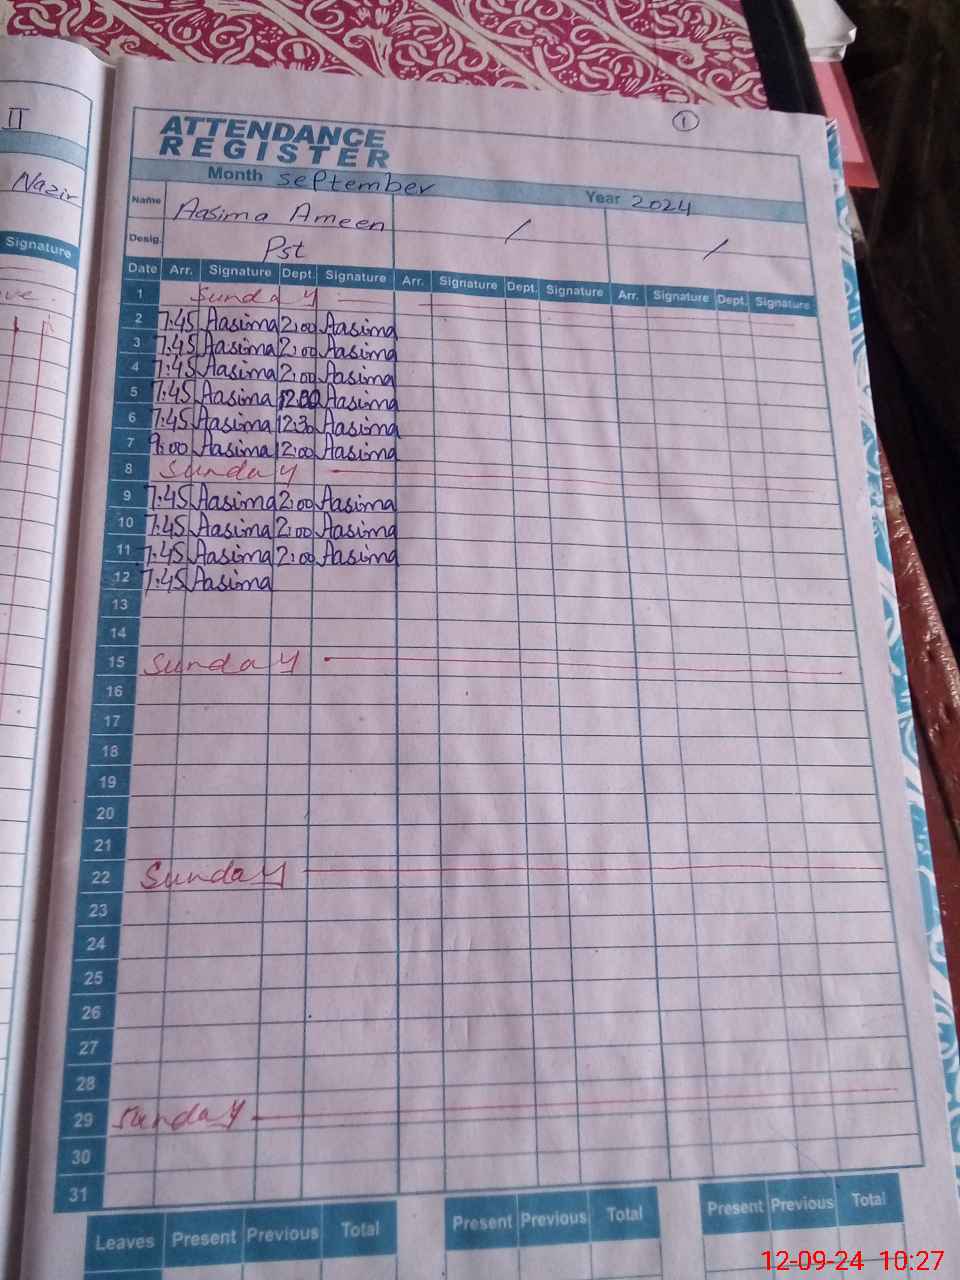 II
Nazir
Signature
①
ATTENDANCE
REGISTER
Month September Year 2024
Name Aasima Ameen /
Desig. Pst /
Date Arr. Signature Dept. Signature Arr. Signature Dept. Signature Arr. Signature Dept. Signature
1 Sunday
2 7:45 Aasima 2:00 Aasima
3 7:45 Aasima 2:00 Aasima
4 7:45 Aasima 2:00 Aasima
5 7:45 Aasima Aasima
6 7:45 Aasima 12:30 Aasima
7 9:00 Aasima 2:00 Aasima
8 Sunday
9 7:45 Aasima 2:00 Aasima
10 7:45 Aasima 2:00 Aasima
11 7:45 Aasima 2:00 Aasima
12 7:45 Aasima
13
14
15 Sunday
16
17
18
19
20
21
22 Sunday
23
24
25
26
27
28
29 Sunday
30
31
Leaves Present Previous Total Present Previous Total Present Previous Total
12-09-24 10:27